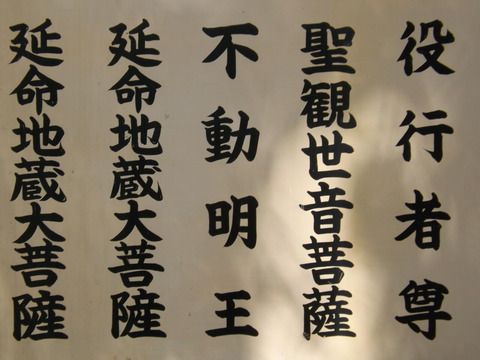 役行者尊
聖観世音菩薩
不動明王
延命地蔵大菩薩
延命地蔵大菩薩